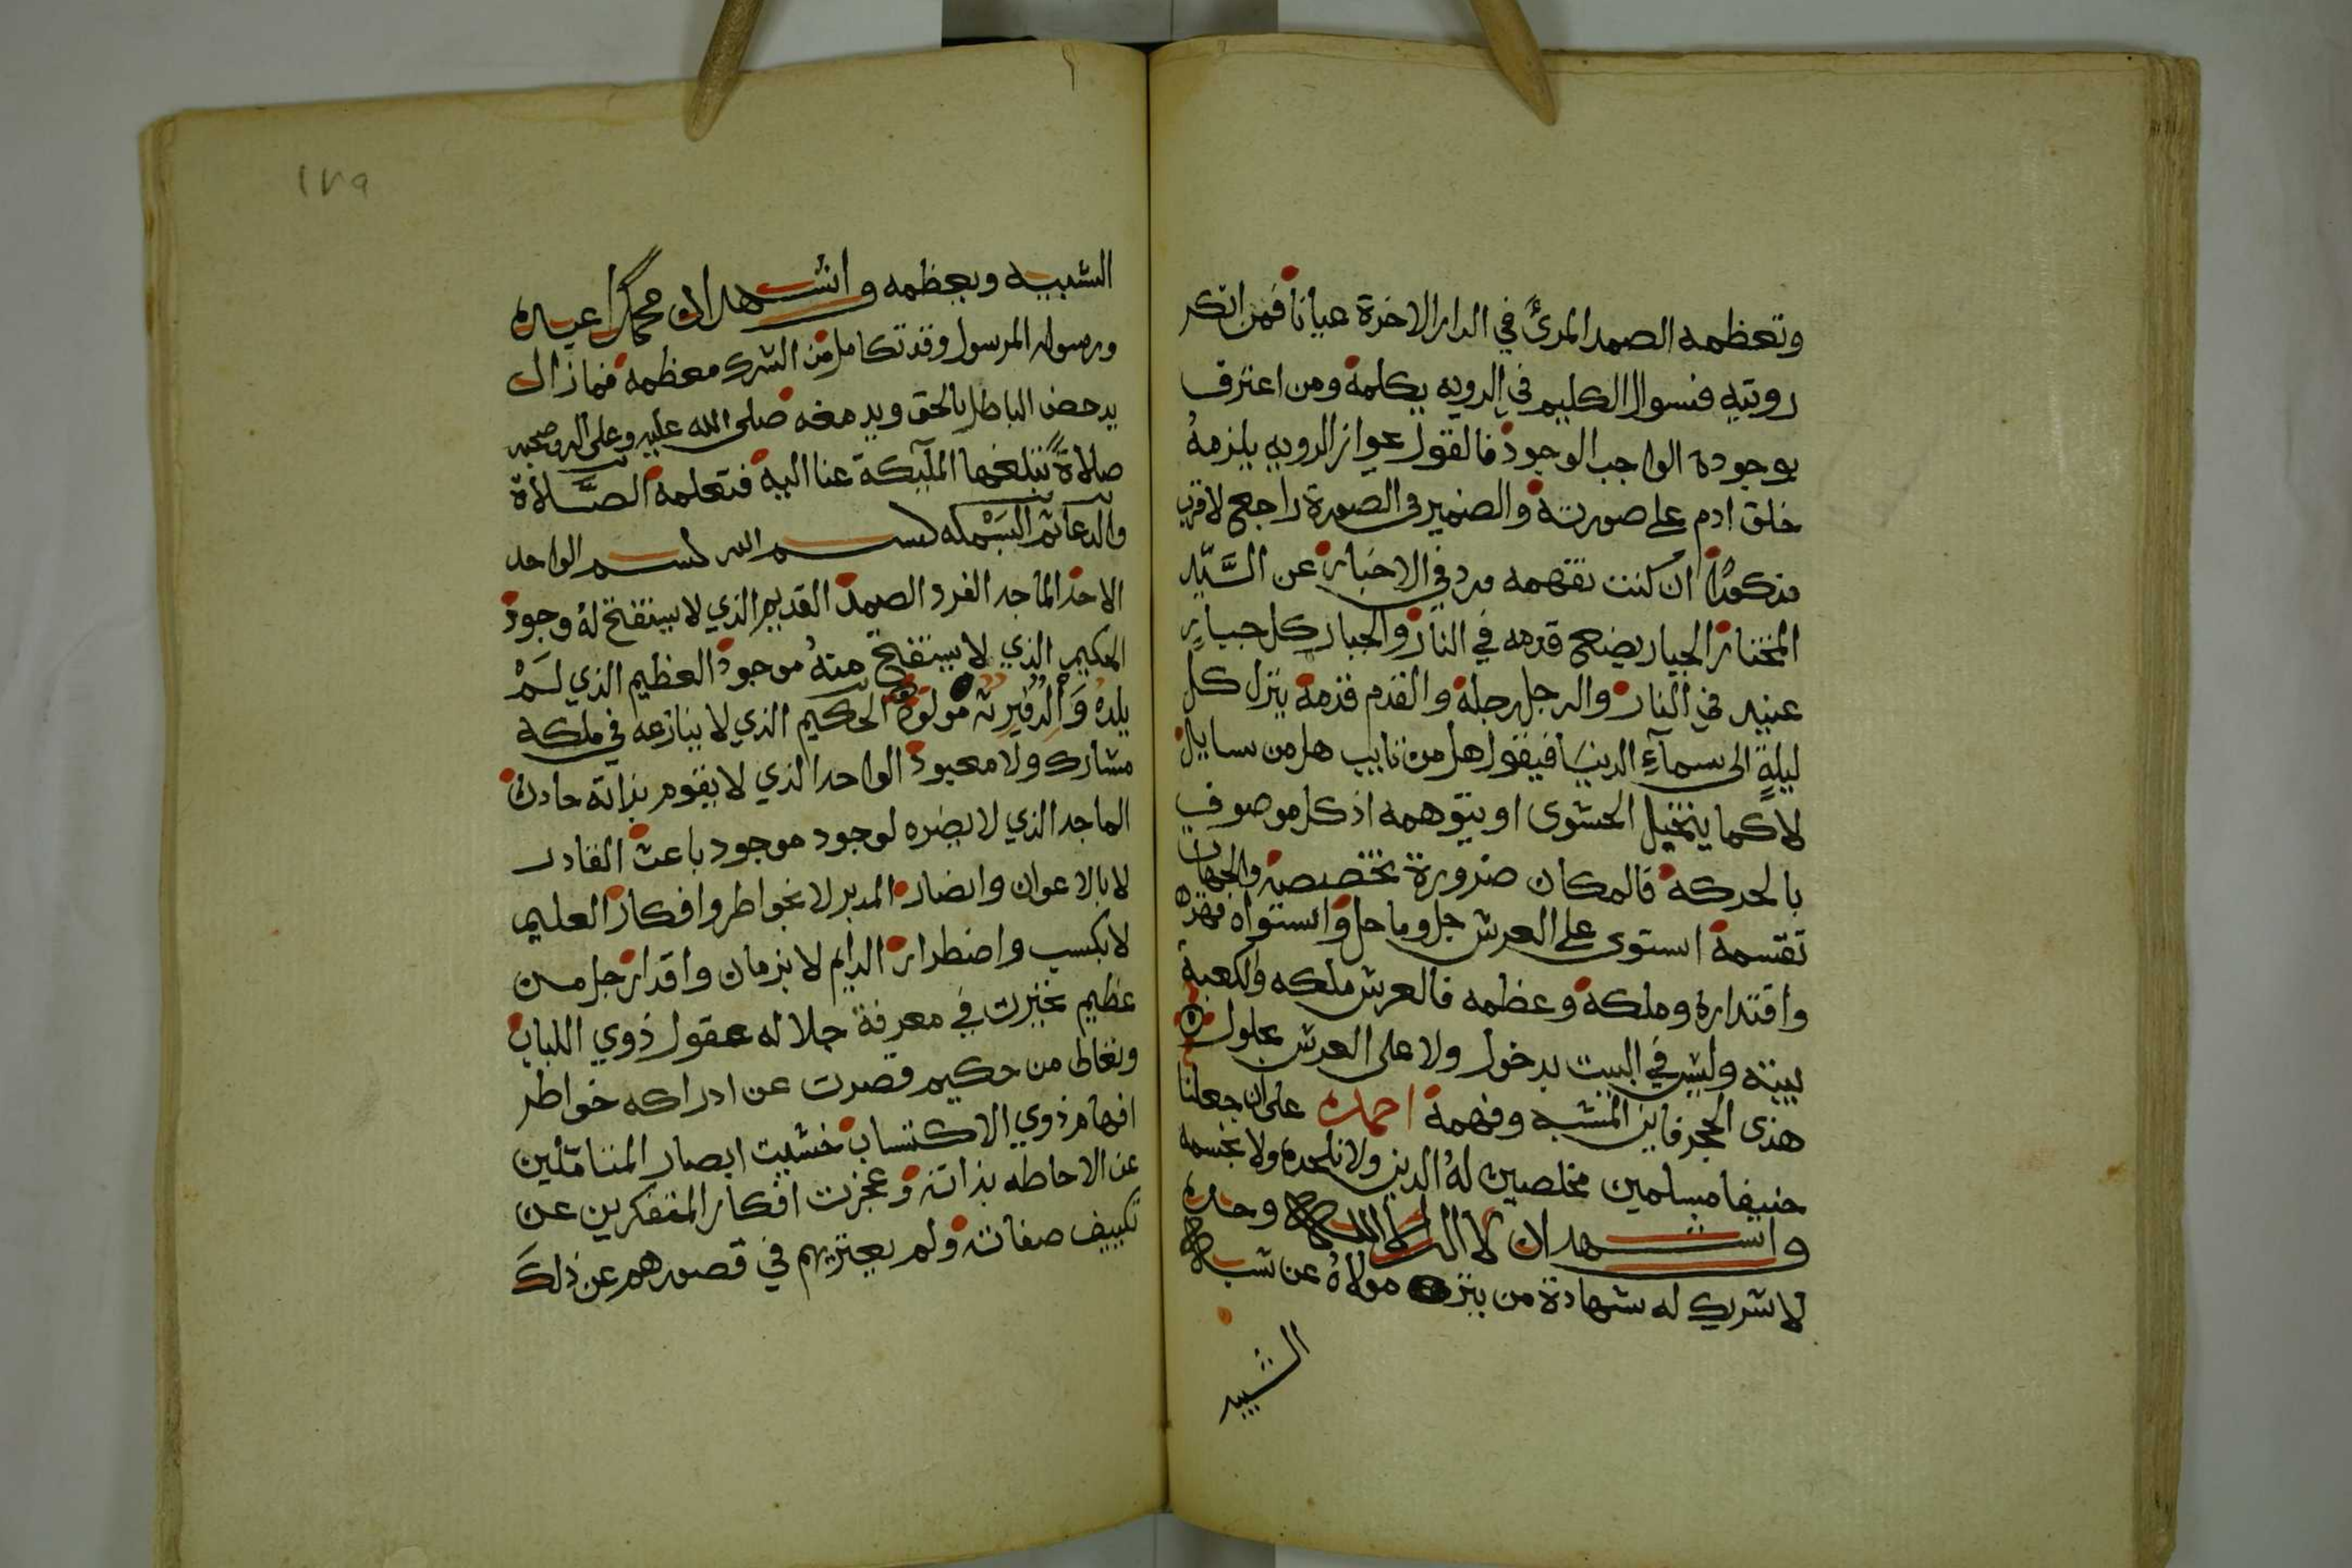 وتعظمه الصمد المرئ في الدار الاخرة عيانا فمن انكر
رويته فسوال الكليم في الرويه يكلمه ومن اعترف
بوجوده الواجب الوجود فالقول بجواز الرويه يلزمهُ
خلق ادم على صورته والضمير في الصورة راجع لاقرب
مذكور ان كنت تفهمه ورد في الاخبار عن السَّيّد
المختار الجبار يضع قدمه في النار والجبار كل جبارٍ
عنيد في النار والرجل رجله والقدم قدمه ينزل كل
ليلةٍ الى سمآءِ الدنيا فيقول هل من تايب هل من سايل
لا كما يتخيل الحشوى او يتوهمه اذ كل موصوف
بالحركه فالمكان ضرورة تخصيصه والجهات
تقسمه استوى على العرش جل وما حل واستواه قهره
واقتداره وملكه وعظمه فالعرش ملكه والكعبة
بيته وليس في البيت بدخول ولا على العرش بحلول
هذى الحجر فاين المشبه وفهمه احمده على ان جعلنا
حنيفا مسلمين مخلصين لهُ الدين ولا نلحده ولا نجسمه
واشهد ان لا اله الا الله وحده
لا شريك له شهادة من ينزه مولاهُ عن شبه
الشبيه
١٧٩
الشبيه ويعظمه واشهد ان محمدًا عبده
ورسوله المرسول وقد تكامل من الشرك معظمه فما زال
يدحض الباطل بالحق ويدمغه صلى الله عليه وعلى اله وصحبه
صلاةً تبلغها الملآيكة عنا اليه فتعلمه الصَّلاة
والدعا ثم البَسْمله بسم الله بسم الواحد
الاحد الماجد الفرد الصمد القديم الذي لا يستفتح لهُ وجود
الحكيم الذي لا يستقبح منهُ موجود العظيم الذي لَمْ
يلدهُ وَالد مولود الحكيم الذي لا ينازعه في ملكه
مشارك ولا معبود الواحد الذي لا يقوم بذاته حادث
الماجد الذي لا يضره لوجود موجود باعث القادر
لا بالاعوان وانصار المدبر لا بخواطر وافكار العليم
لا بكسب واضطرار الدايم لا بزمان واقدار جل من
عظيم تحيرت في معرفة جلاله عقول ذوي اللباب
وتعاظ من حكيم قصرت عن ادراكه خواطر
افهام ذوي الاكتساب خشيت ابصار المتناملين
عن الاحاطه بذاته وعجزت افكار المتفكرين عن
تكييف صفاته ولم يعتريهم في قصورهم عن ذلكَ